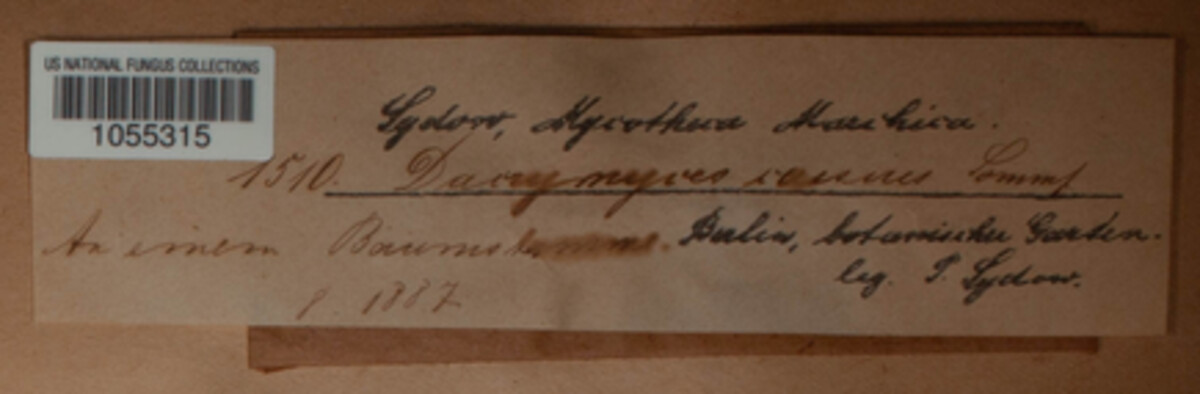 US NATIONAL FUNGUS COLLECTIONS
1055315
Sydow, Mycotheca Marchica.
1510. Dacrymyces caesius Sommf.
An einem Baumstamme. Berlin, botanischer Garten.
leg. P. Sydow.
1887